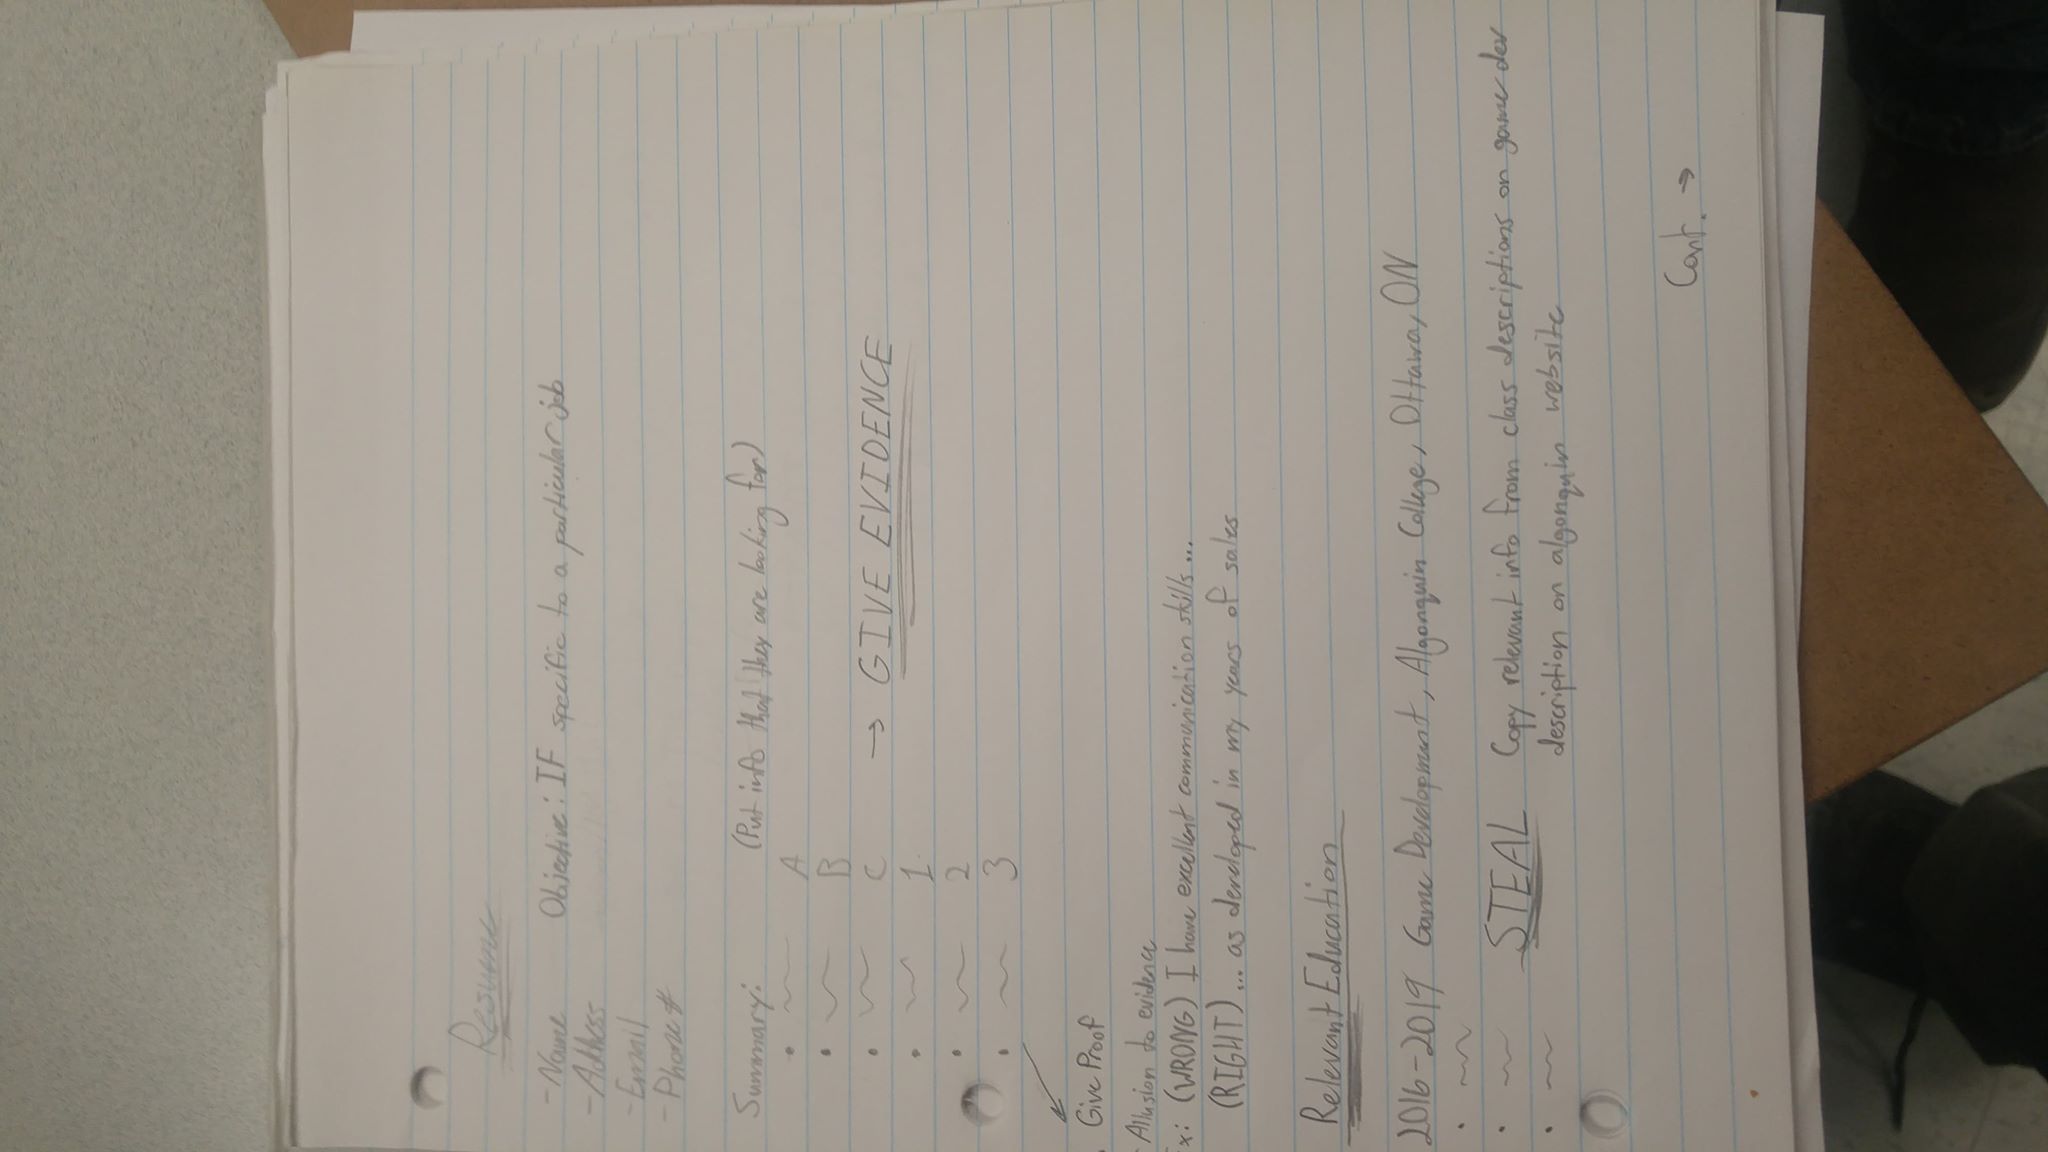 Resume
- Name Objective: IF specific to a particular job
- Address
- Email
- Phone #
Summary: (Put info that they are looking for)
• A
• B
• C → GIVE EVIDENCE
• 1
• 2
• 3
Give Proof
- Allusion to evidence
Ex: (WRONG) I have excellent communication skills ...
(RIGHT) ... as developed in my years of sales
Relevant Education
2016-2019 Game Development, Algonquin College, Ottawa, ON
STEAL Copy relevant info from class descriptions on game dev
description on algonquin website
Cont. →